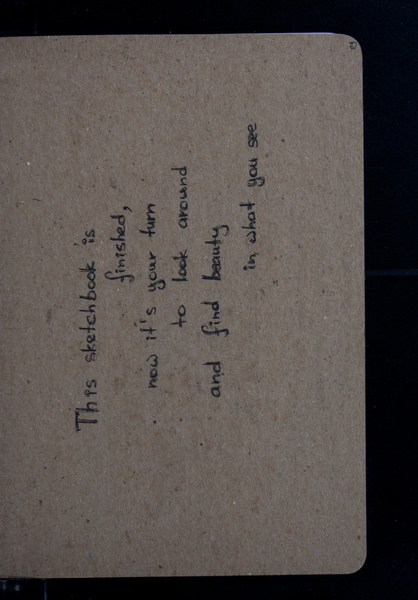 This sketchbook is
finished,
now it's your turn
to look around
and find beauty
in what you see